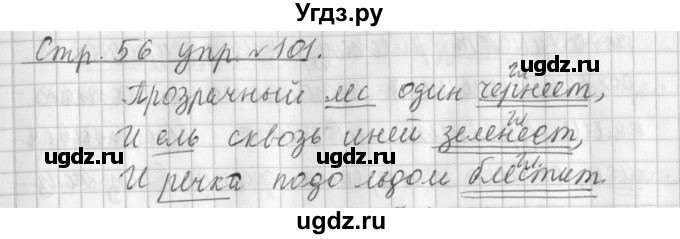 Угдз.ру
Стр. 56 упр. №101.
гл
Прозрачный лес один чернеет,
гл
И ель сквозь иней зеленеет,
гл
И речка подо льдом блестит.
ugdz.ru ugdz.ru ugdz.ru
ugdz.ru ugdz.ru ugdz.ru
ugdz.ru
Угдз.ру